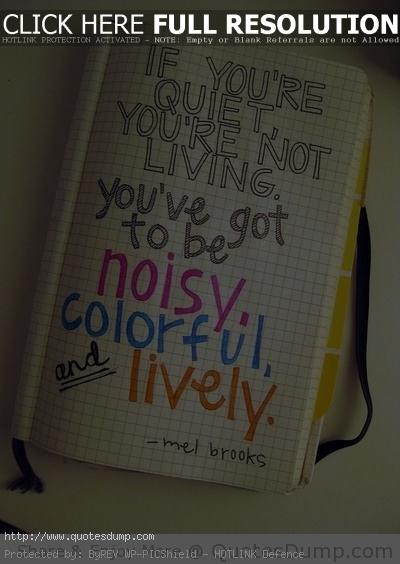 CLICK HERE FULL RESOLUTION
HOTLINK PROTECTION ACTIVATED - NOTE: Empty or Blank Referrals are not Allowed
IF YOU'RE
QUIET,
YOU'RE NOT
LIVING.
you've got
to be
noisy,
colorful,
and
lively.
-mel brooks
http://www.quotesdump.com
Protected by: ByREV WP-PICShield - HOTLINK Defence
QuotesDump.com